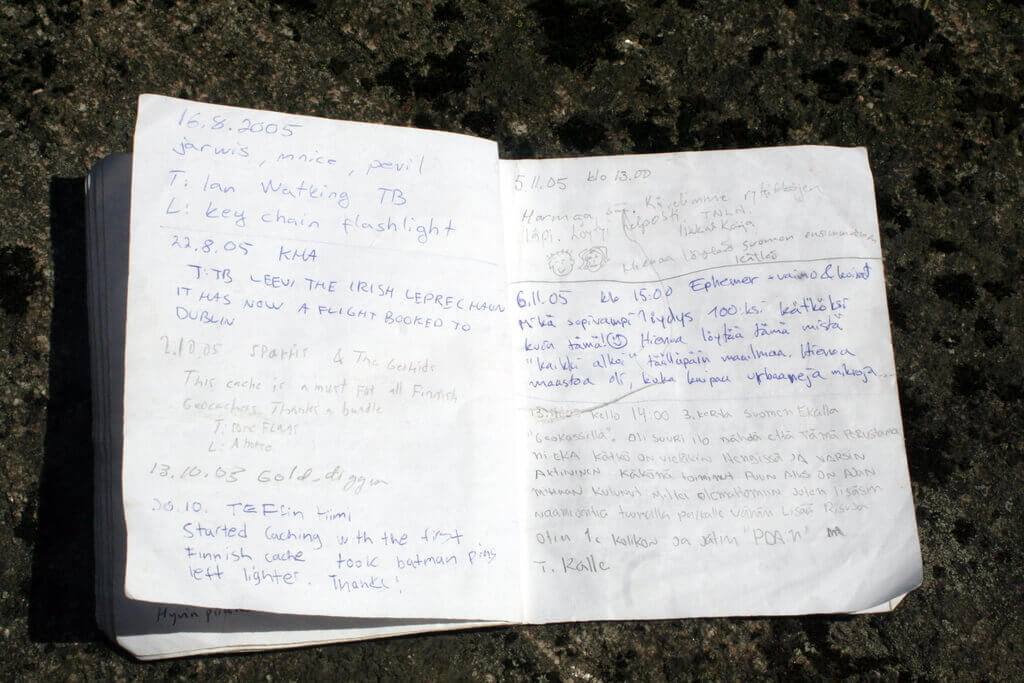 16.8.2005
jarwis, mnice, pevil
T: Ian Watking TB
L: key chain flashlight
22.8.05 KHA
T: TB LEEVI THE IRISH LEPRECHAUN
IT HAS NOW A FLIGHT BOOKED TO
DUBLIN
2.10.05 & The Geokids
This cache is a must for all Finnish
Geocachers Thanks a bundle
T:
L:
13.10.05 Gold_digger
30.10. TEFlin tiimi
Started Caching with the first
Finnish cache took batman ping
left lighter. Thanks!
Hyvin
5.11.05 klo 13.00
Harmaa Kävelimme
läpi. Löytyi helposti. TNLN.
Hienoa löytää suomen ensimmäinen
kätkö
6.11.05 klo 15:00 Ephemer + vaimo & koirat
Mikä sopivampi löydys 100:ksi kätköksi
kuin tämä! Hienoa löytää tämä mistä
"kaikki alkoi" täälläpäin maailmaa. Hienoa
maastoa oli, kuka kaipaa urbaaneja mikroja...
kello 14:00 3. kerta Suomen Ekalla
"Geokässillä". Oli suuri ilo nähdä että tämä
EKA KÄTKÖ ON VIELÄKIN HENGISSÄ JA VARSIN
AKTIIVINEN
olemattomiin joten lisäsin
naamiointia tuomalla paikalle vähän lisää Risuja
Otin 1c kolikon ja jätin "PDA:n"
T. Kalle